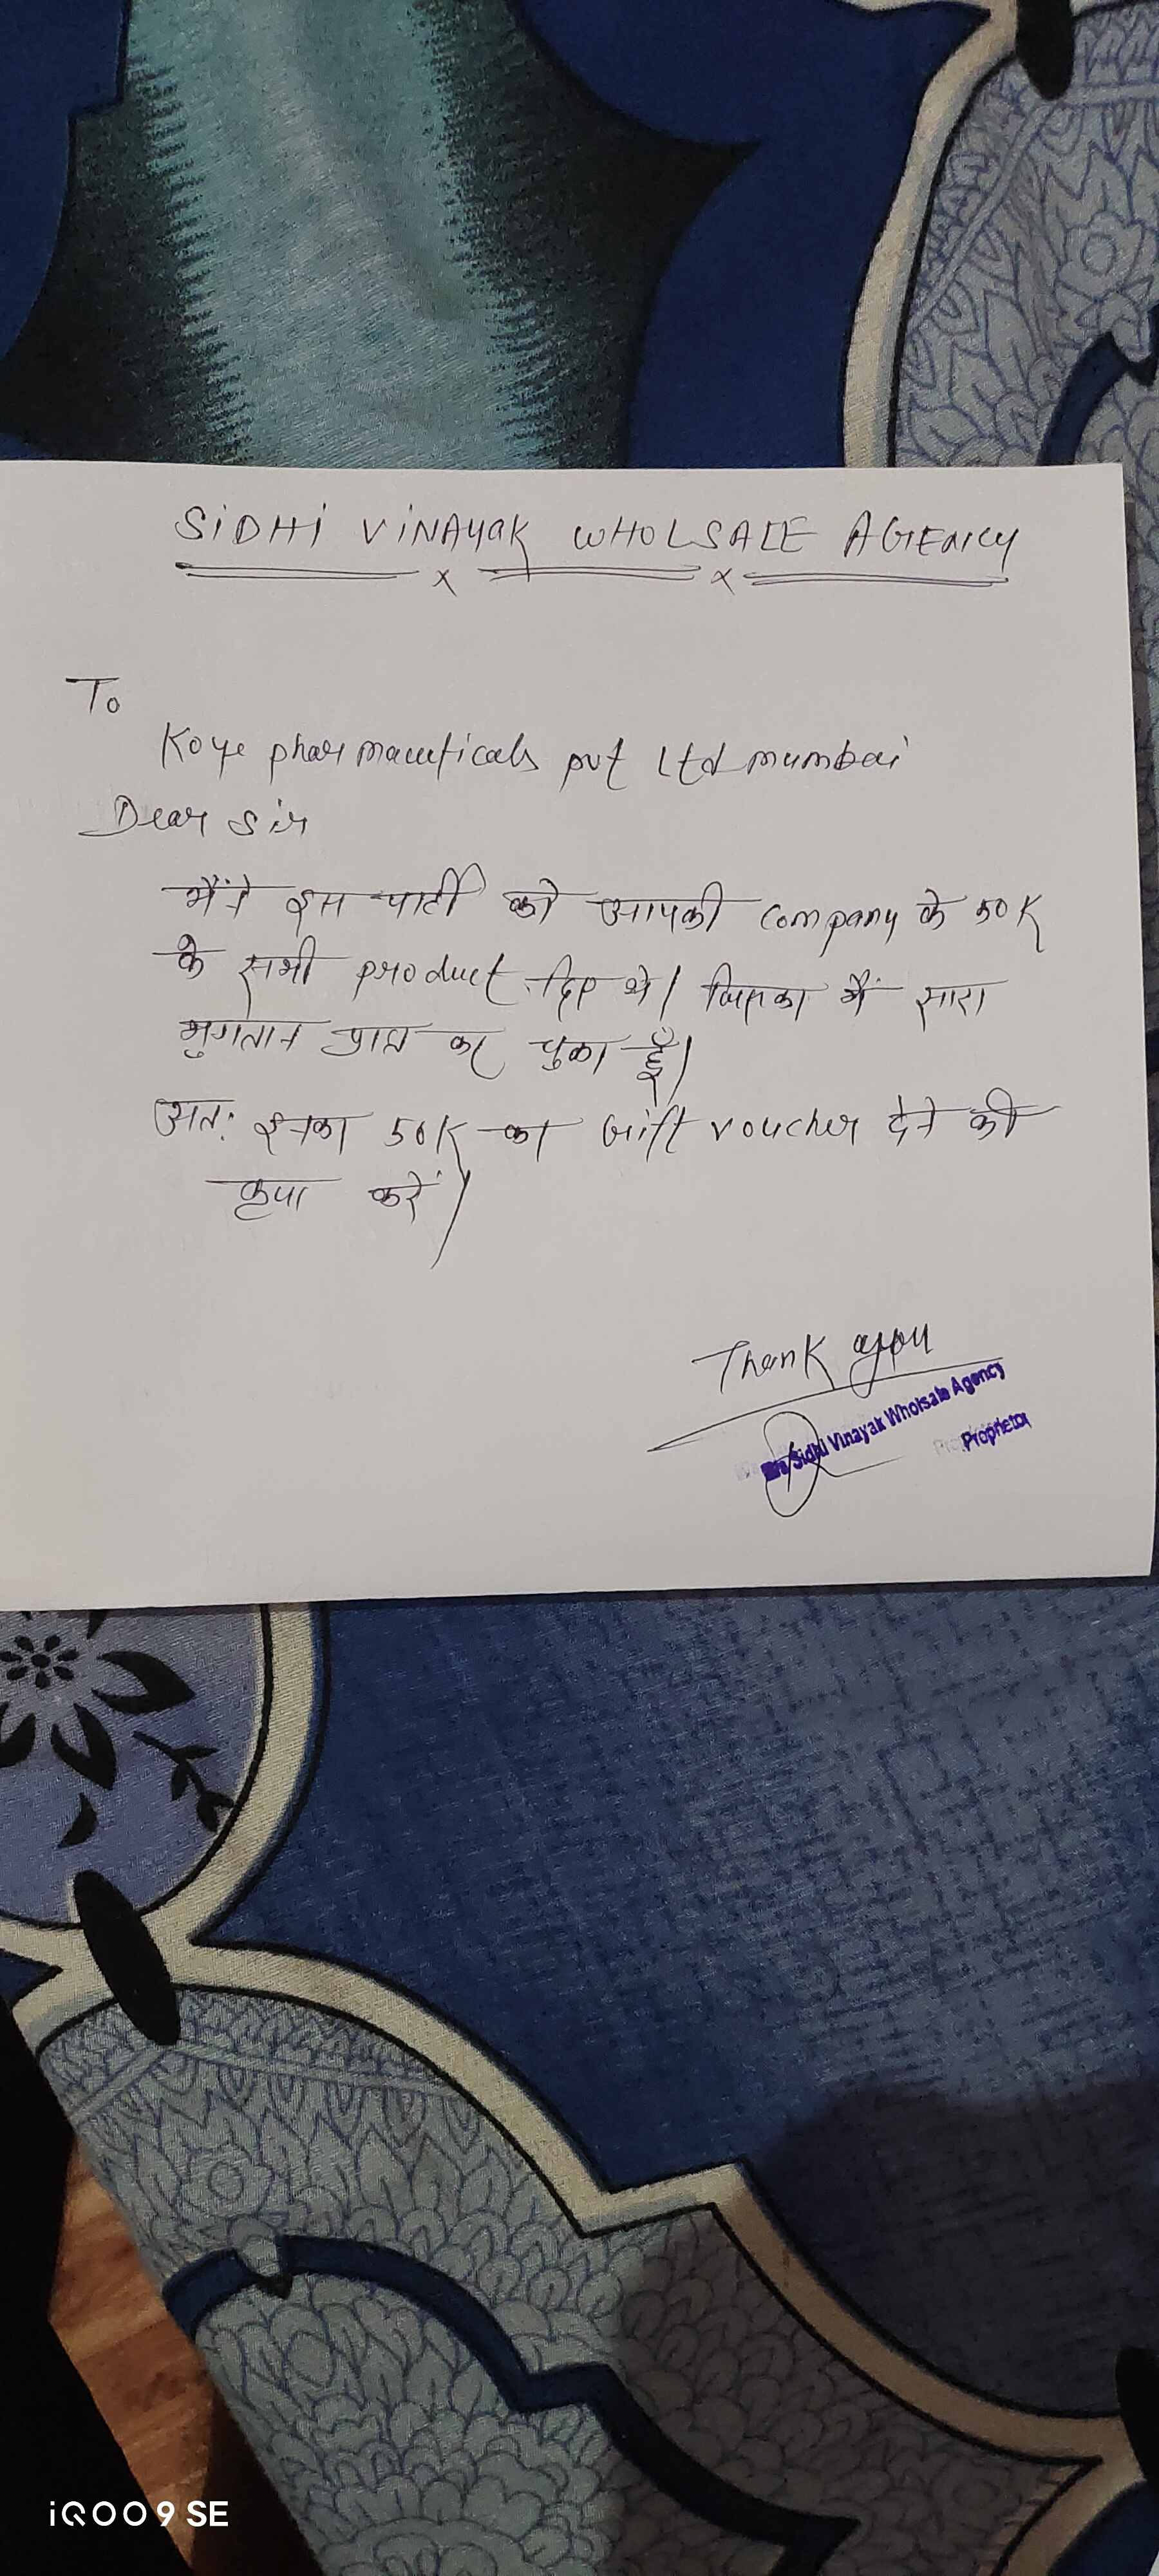 SIDHI VINAYAK WHOLSALE AGENCY
x x
To
Koye pharmaceuticals pvt Ltd mumbai
Dear Sir
मैंने इस पार्टी को आपकी company के 50K
के सभी product दिए थे। जिसका मैं सारा
भुगतान प्राप्त कर चुका हूँ।
अतः इनका 50K का Gift voucher देने की
कृपा करें।
Thank you
Sidhi Vinayak Wholsale Agency
Proprietor
iQOO 9 SE